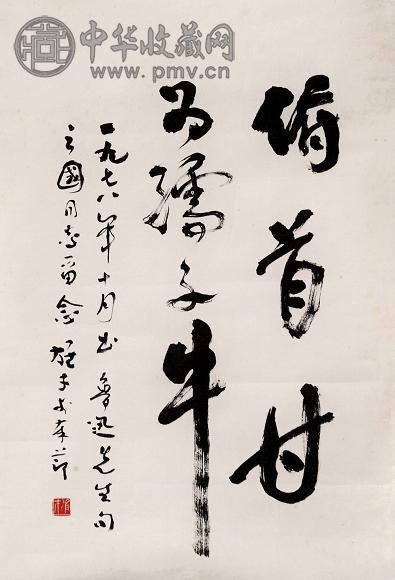 中华收藏网
www.pmv.cn
俯首甘
为孺子牛
一九七八年十月书 鲁迅先生句
之國同志留念 雄才于奉节